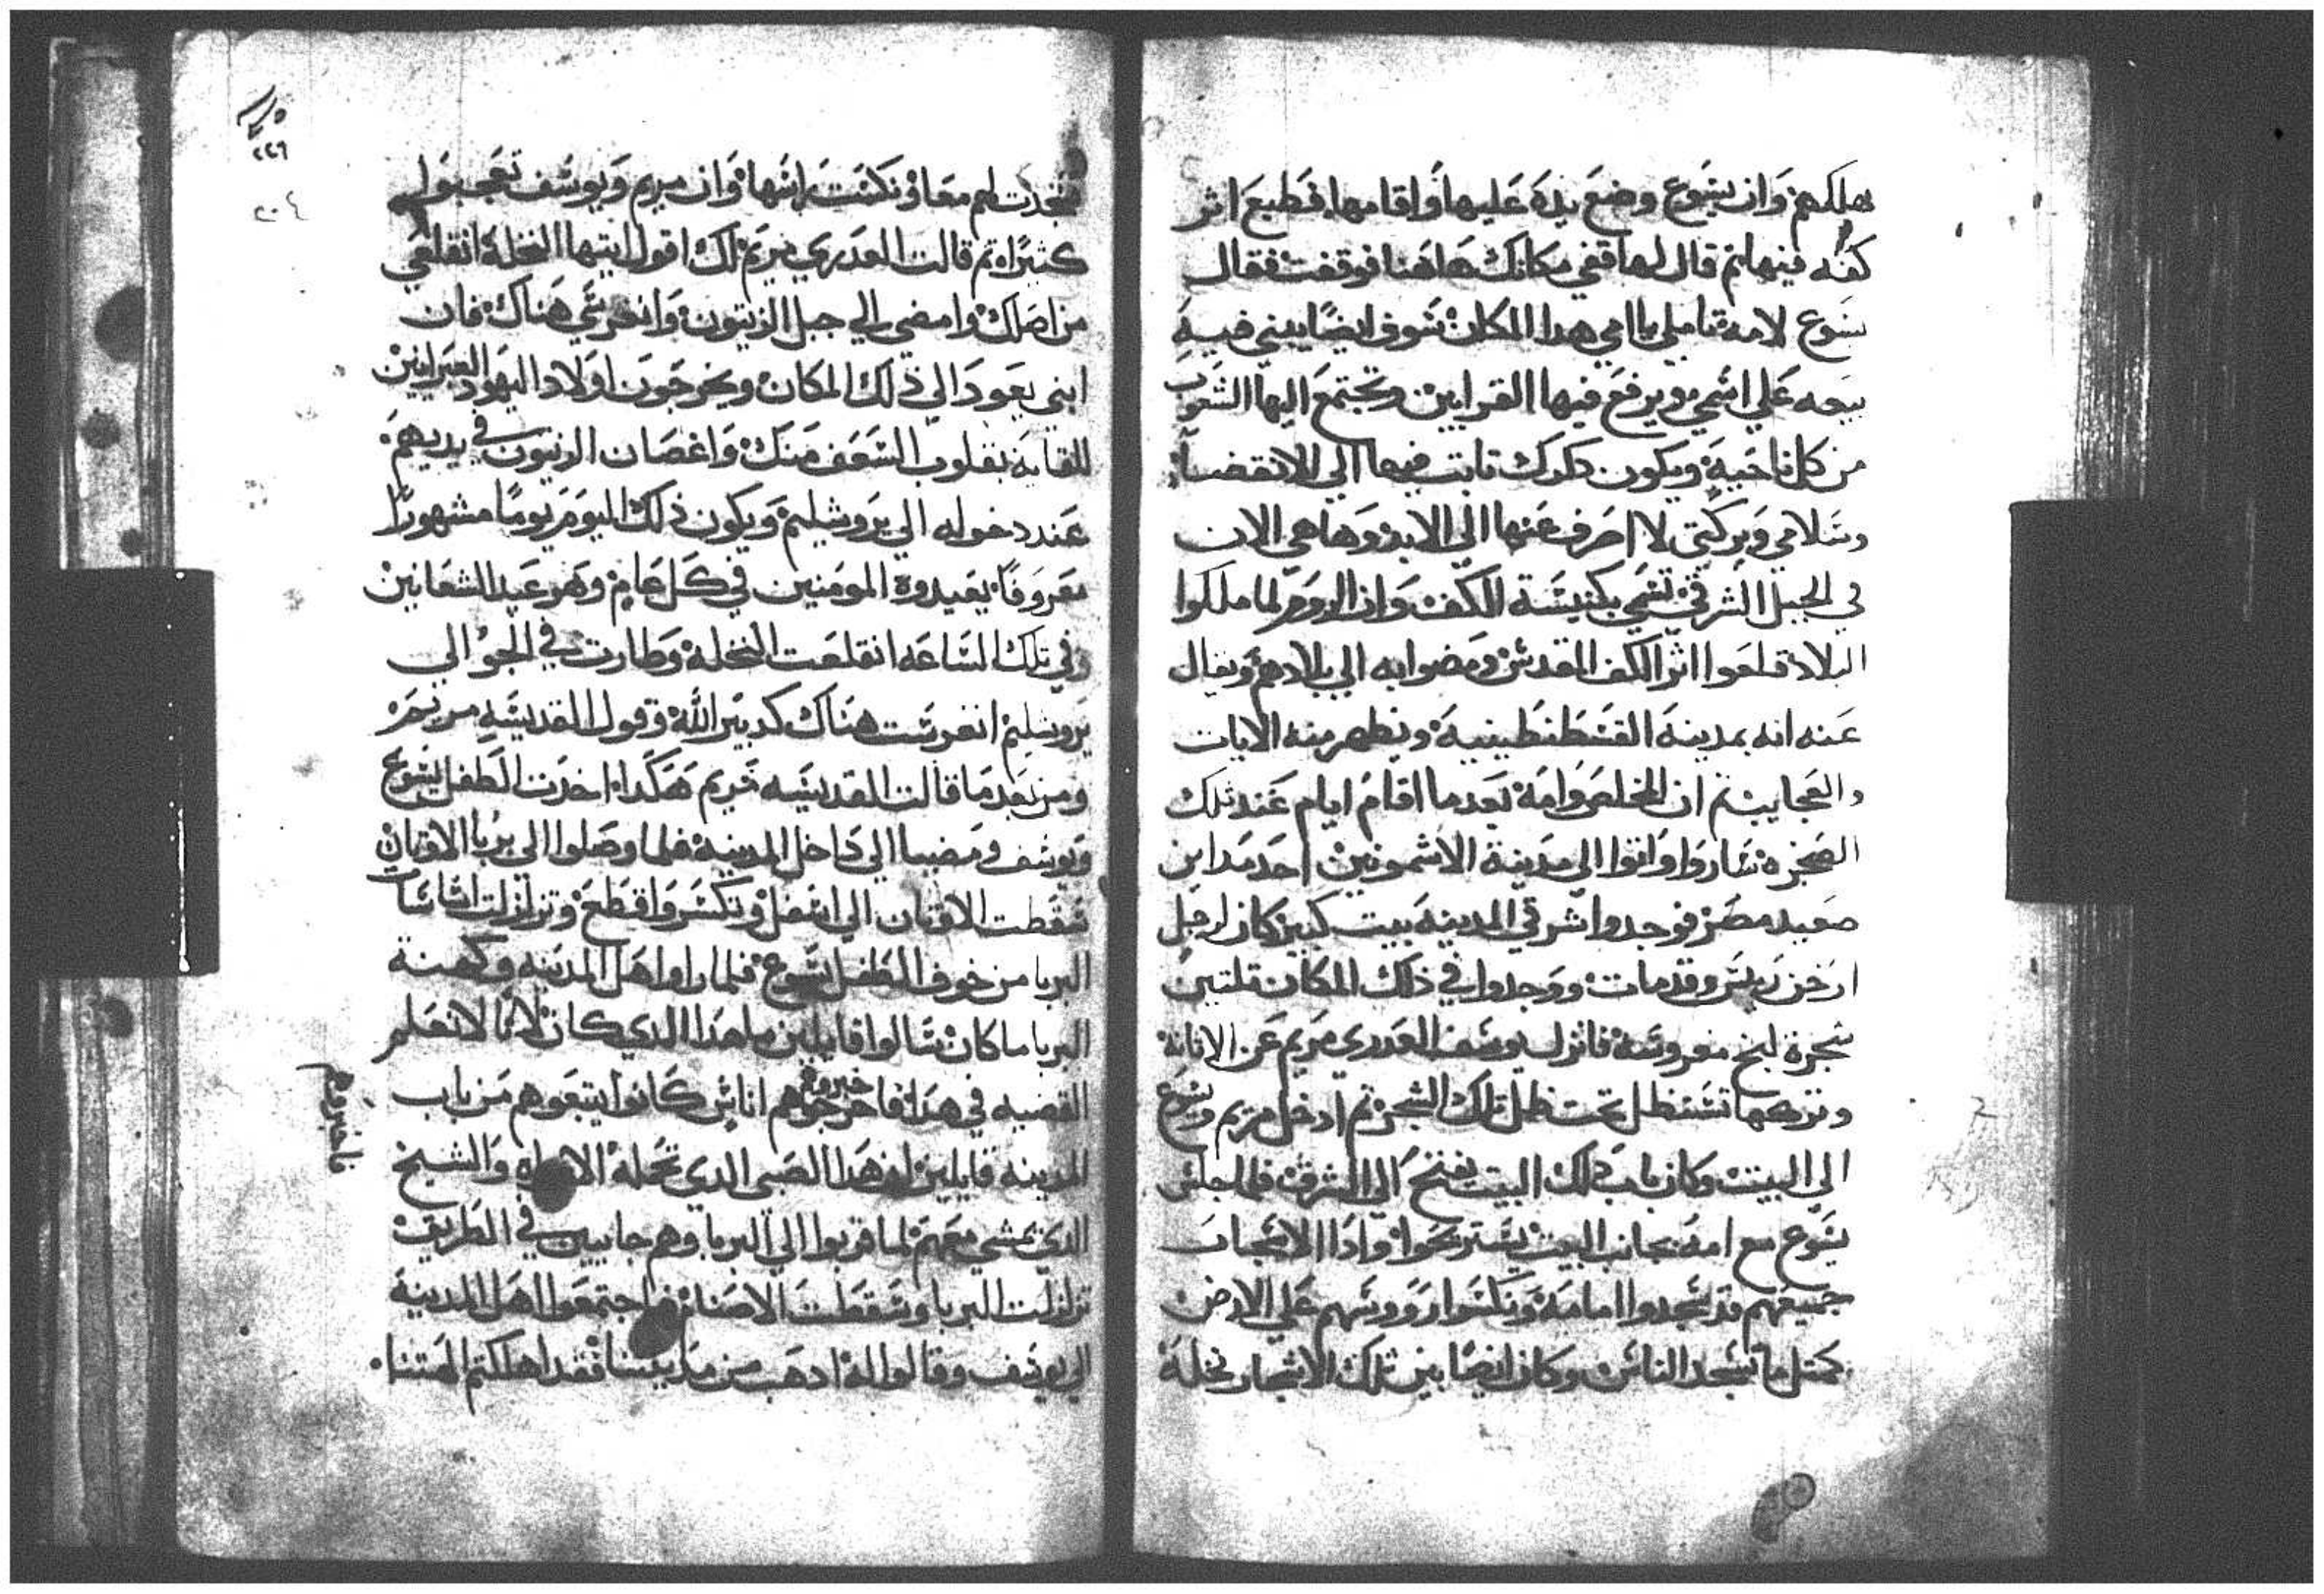 يهلكهم وان يسوع وضع يده عليها واقامها فطبع اثر
كفه فيها ثم قال لها قفي مكانك هاهنا فوقفت فقال
يسوع لامه تاملي يا امي هدا المكان سوف ايضا يبني فيه
بيعه علي اسمي ويرفع فيها القرابين وتجتمع اليها الشعوب
من كل ناحيه ويكون دكرك تابت فيها الي الانقضا
وسلامي وبركتي لا احرف عنها الي الابد وها هي الان
في الجبل الشرقي تسمي بكنيسة الكف وان الروم لما ملكوا
البلاد قلعوا اثر الكف المقدس ومضوا به الي بلادهم ويقال
عنه انه بمدينة القسطنطينية ويظهر منه الايات
والعجايب ثم ان المخلص وامه بعد ما اقام ايام عند تلك
الصخره ساروا واتوا الي مدينة الاشمونين احد مداين
صعيد مصر فوجدوا شرقي المدينه بيت كبير كان لرجل
ارخن ريس وقد مات ووجدوا في ذلك المكان تلتين
شجرة لبخ مغروسه فانزل يوسف العدري مريم عن الاتانه
وتركها تستظل تحت ظل تلك الشجر ثم ادخل مريم ويسوع
الي البيت وكان باب ذلك البيت يفتح الي الشرق فلما جلس
يسوع مع امه بجانب البيت يستريحوا واذا الاشجار
جميعهم قد سجدوا امامه ونكسوا روسهم علي الارض
كمتل ما تسجد الناس وكان ايضا بين تلك الاشجار نخله
٢٢٦
٢٠٤
فسجدت لهم معا ونكست راسها وان مريم ويوسف تعجبوا
كثيرا ثم قالت العدري مريم لك اقول ايتها النخلة انقلعي
من اصلك وامضي الي جبل الزيتون وانغرسي هناك فان
ابني يعود الي ذلك المكان ويخرجون اولاد اليهود العبرانيين
للقايه بقلوب السعف منك واغصان الزيتون في يديهم
عند دخوله الي يروشليم ويكون ذلك اليوم يوما مشهورا
معروفا يعيدوه المومنين في كل عام وهو عيد الشعانين
وفي تلك الساعه انقلعت النخلة وطارت في الجو الي
يروشليم انغرست هناك كدبير الله وقول القديسه مريم
ومن بعد ما قالت القديسه مريم هكدا اخدت الطفل يسوع
ويوسف ومضيا الي داخل المدينة فلما وصلوا الي بربا الاوتان
سقطت الاوتان الي اسفل وتكسروا قطع وتزلزلت اساسات
البربا من خوف الطفل يسوع فلما راوا اهل المدينه وكهنة
البربا ما كان سالوا قايلين ما هدا الدي كان لاننا لا نعلم
القضيه في هدا فاخبروهم اناس كانوا يتبعوهم من باب
المدينه قايلين ان هدا الصبي الدي تحمله الامراه والشيخ
الدي يمشي معهم لما قربوا الي البربا وهم جاييين في الطريق
تزلزلت البربا وسقطت الاصنام فاجتمعوا اهل المدينة
الي يوسف وقالوا له ادهب من مدينتنا فقد اهلكتم الهتنا
فاخبروهم